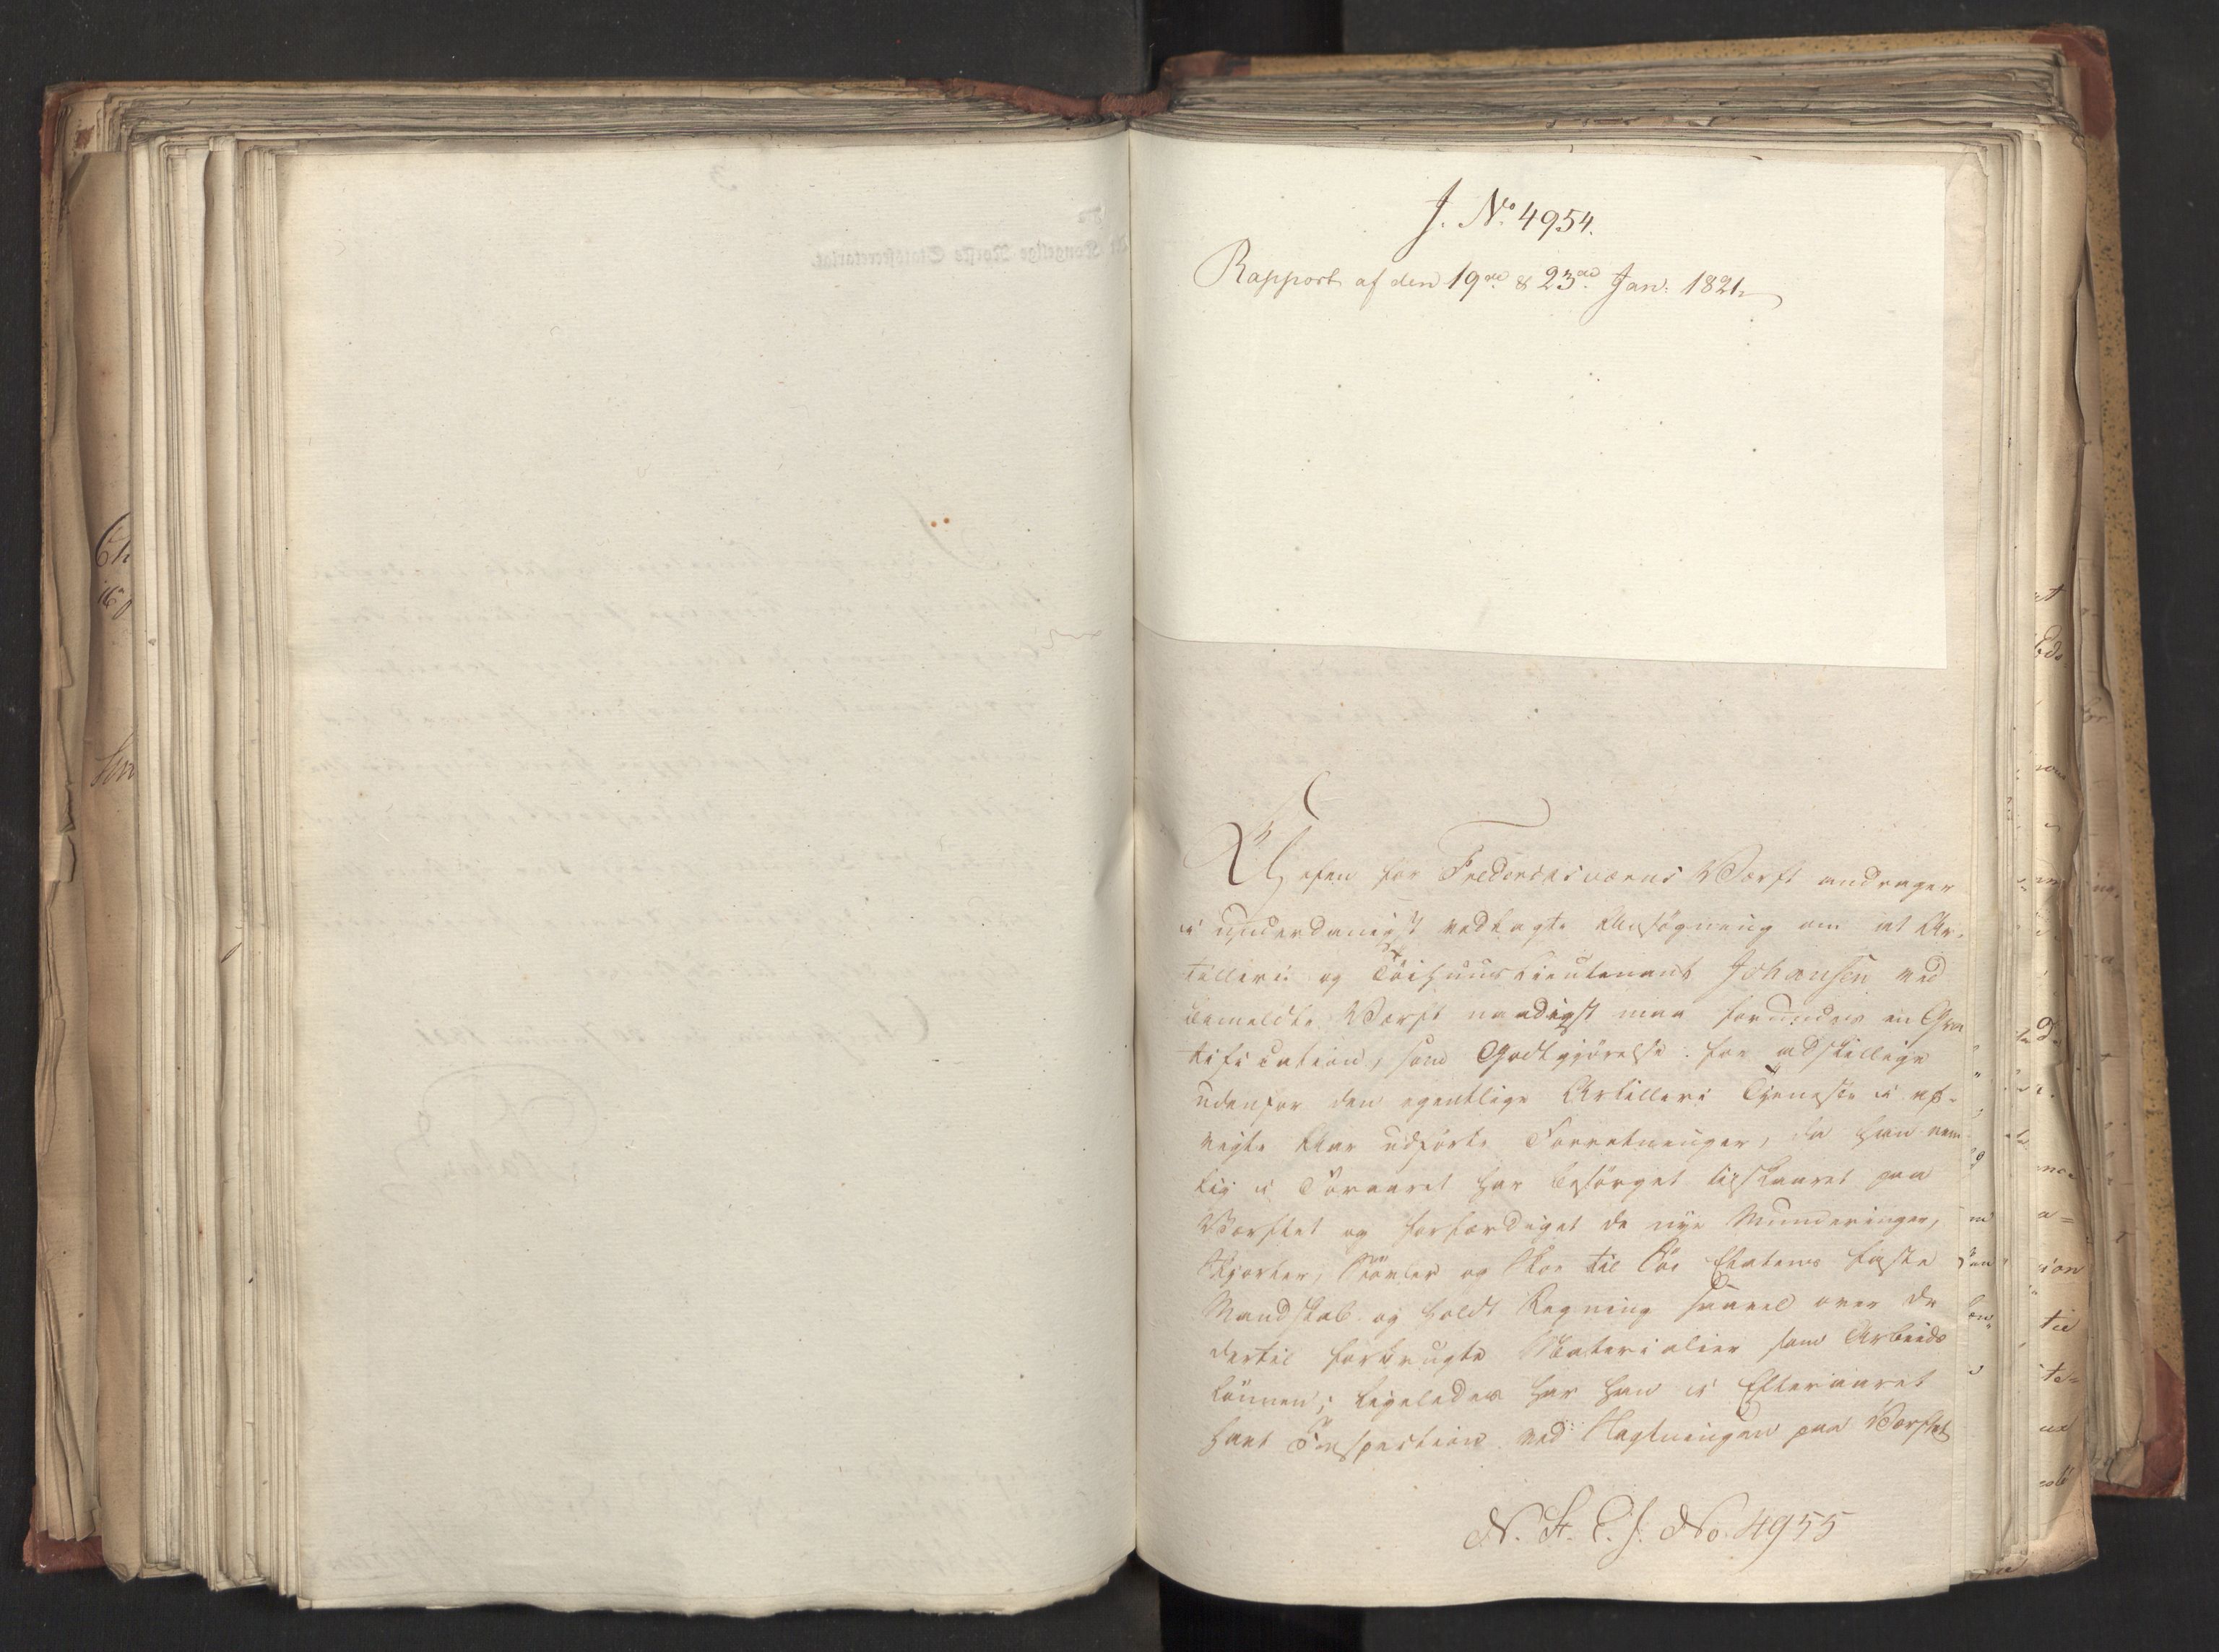 J. No. 4954.
Rapport af den 19de & 23de Jan: 1821.
Chefen for Fredericksværns Værft andrager
i underdanigst vedlagte Ansøgning om at Ar-
tillerie og Töihuuslieutenant Johansen ved
bemeldte Værft naadigst maa forundes en Gra
tification, som Godtgjörelse for adskillige
udenfor den egentlige Artillerie Tjeneste i af-
vigte Aar udförte Forretninger, da han nem
lig i Foraaret har besörget Opskaaret paa
Værftet og forfærdiget de nye Munderinger,
Skjorter, Stövler og Skoe til Söe Etatens faste
Mandskab og holdt Regning saavel over de
dertil forbrugte Materialier som Arbeids
lönnen; ligeledes har han i Efteraaret
havt Inspection ved Slagtningen paa Værftet
N. St. S. J. No. 4955